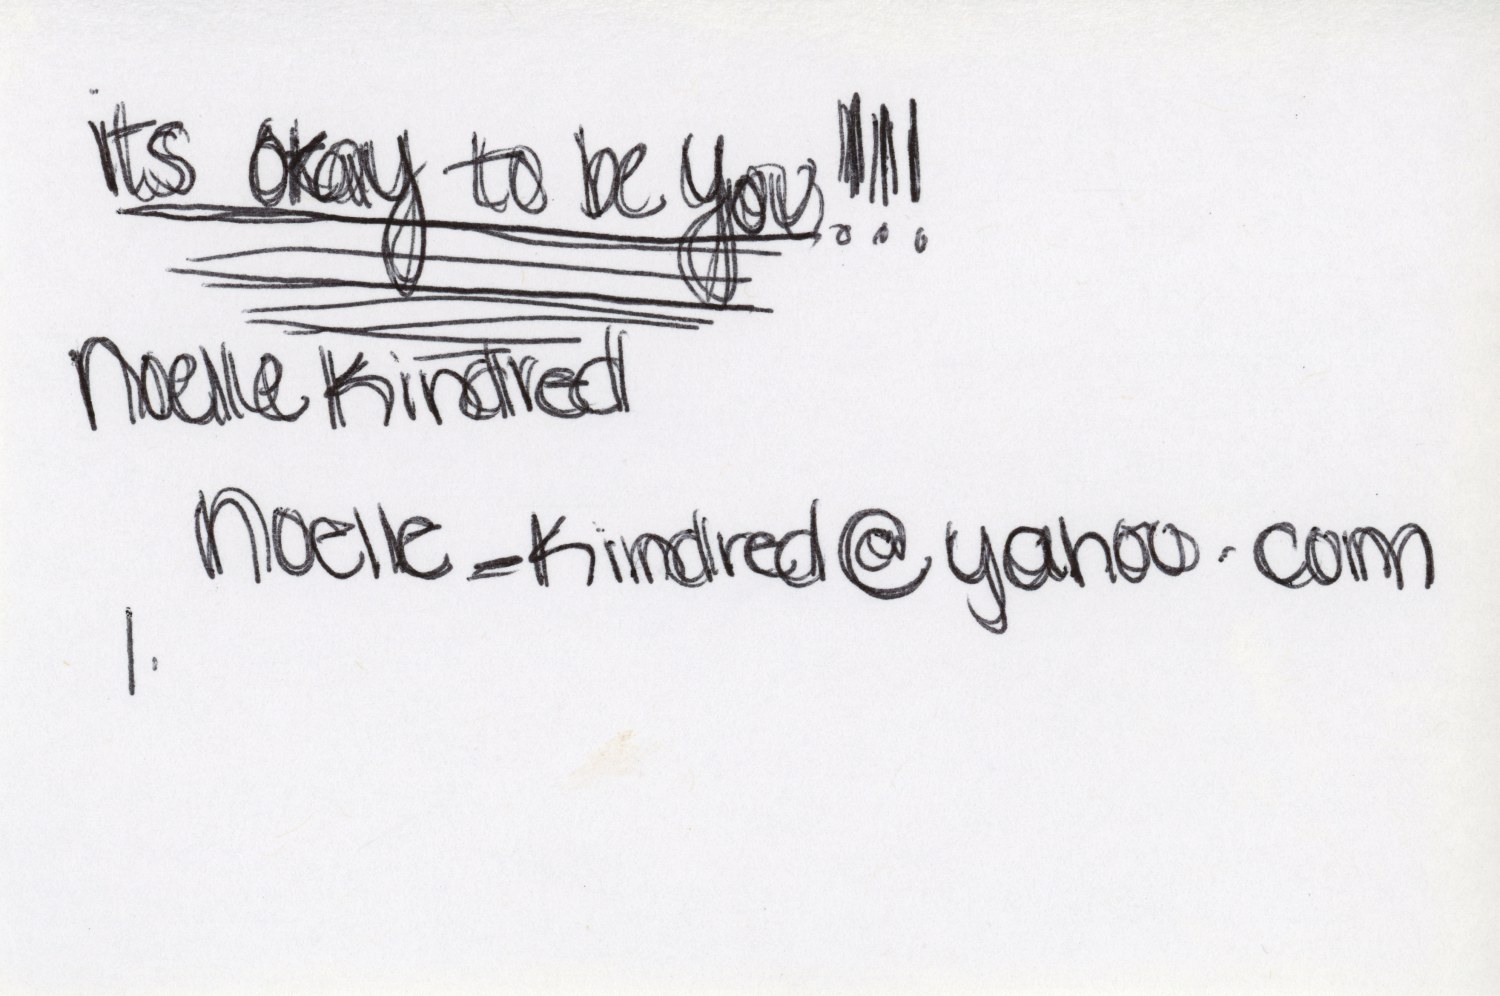 its okay to be you!!!
Noelle Kindred
Noelle_Kindred@yahoo.com